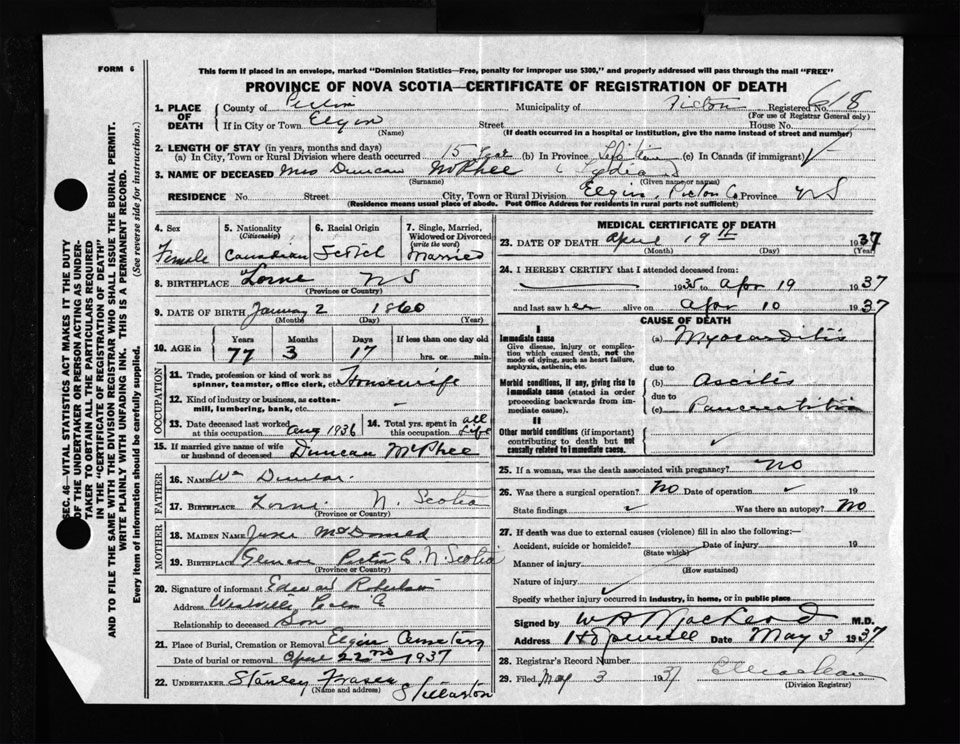 FORM 6
This form if placed in an envelope, marked "Dominion Statistics—Free, penalty for improper use $300," and properly addressed will pass through the mail "FREE"
PROVINCE OF NOVA SCOTIA—CERTIFICATE OF REGISTRATION OF DEATH
1. PLACE OF DEATH
County of Municipality of Pictou Registered No. 618
(For use of Registrar General only)
If in City or Town Elgin Street House No.
(Name) (If death occurred in a hospital or institution, give the name instead of street and number)
2. LENGTH OF STAY (in years, months and days)
(a) In City, Town or Rural Division where death occurred 15 Year (b) In Province Life time (c) In Canada (if immigrant)
3. NAME OF DECEASED Mrs Duncan McPhee Lydia
(Surname) (Given name or names)
RESIDENCE No. Street City, Town or Rural Division Elgin, Pictou Co Province NS
(Residence means usual place of abode. Post Office Address for residents in rural parts not sufficient)
4. Sex Female
5. Nationality (Citizenship) Canadian
6. Racial Origin Scotch
7. Single, Married, Widowed or Divorced (write the word) Married
8. BIRTHPLACE Lorne NS
(Province or Country)
9. DATE OF BIRTH January 2 1860
(Month) (Day) (Year)
10. AGE in Years 77 Months 3 Days 17 If less than one day old hrs. or min.
OCCUPATION
11. Trade, profession or kind of work as spinner, teamster, office clerk, etc. Housewife
12. Kind of industry or business, as cotton-mill, lumbering, bank, etc. –
13. Date deceased last worked at this occupation Aug 1936
14. Total yrs. spent in this occupation all Life
15. If married give name of wife or husband of deceased Duncan McPhee
FATHER
16. NAME Wm Dunbar
17. BIRTHPLACE Lorne N. Scotia
(Province or Country)
MOTHER
18. MAIDEN NAME McDonald
19. BIRTHPLACE Pictou Co N. Scotia
(Province or Country)
20. Signature of informant Robertson
Address Westville
Relationship to deceased Son
21. Place of Burial, Cremation or Removal Elgin Cemetery
Date of burial or removal April 22nd 1937
22. UNDERTAKER Stanley Fraser Stellarton
(Name and address)
MEDICAL CERTIFICATE OF DEATH
23. DATE OF DEATH April 19th 1937
(Month) (Day) (Year)
24. I HEREBY CERTIFY that I attended deceased from:
1935 to Apr 19 1937
and last saw her alive on Apr 10 1937
CAUSE OF DEATH
I
Immediate cause
Give disease, injury or complication which caused death, not the mode of dying, such as heart failure, asphyxia, asthenia, etc.
(a) Myocarditis
due to
Morbid conditions, if any, giving rise to immediate cause (stated in order proceeding backwards from immediate cause).
(b) Ascites
due to
(c) Pancreatitis
II
Other morbid conditions (if important) contributing to death but not causally related to immediate cause.
25. If a woman, was the death associated with pregnancy? No
26. Was there a surgical operation? No Date of operation 19
State findings Was there an autopsy? No
27. If death was due to external causes (violence) fill in also the following:—
Accident, suicide or homicide? Date of injury 19
(State which)
Manner of injury
(How sustained)
Nature of injury
Specify whether injury occurred in industry, in home, or in public place
Signed by W A MacLeod M.D.
Address Hopewell Date May 3 1937
28. Registrar's Record Number
29. Filed May 3 1937
(Division Registrar)
SEC. 46—VITAL STATISTICS ACT MAKES IT THE DUTY
OF THE UNDERTAKER OR PERSON ACTING AS UNDER-
TAKER TO OBTAIN ALL THE PARTICULARS REQUIRED
IN THE "CERTIFICATE OF REGISTRATION OF DEATH"
AND TO FILE THE SAME WITH THE DIVISION REGISTRAR WHO SHALL ISSUE THE BURIAL PERMIT.
WRITE PLAINLY WITH UNFADING INK. THIS IS A PERMANENT RECORD.
Every item of information should be carefully supplied. (See reverse side for instructions.)